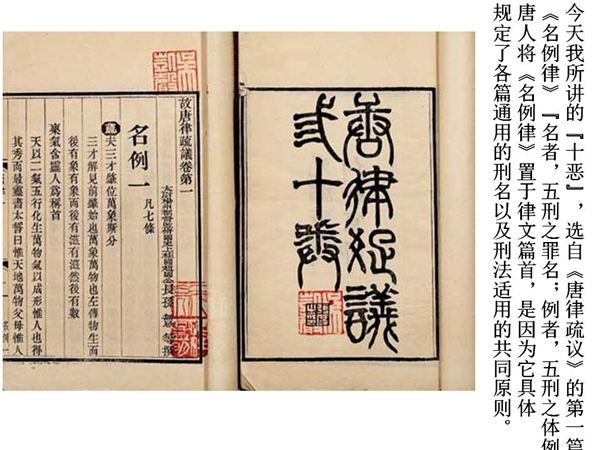 今天我所讲的『十恶』，选自《唐律疏议》的第一篇
《名例律》『名者，五刑之罪名；例者，五刑之体例
唐人将《名例律》置于律文篇首，是因为它具体
规定了各篇通用的刑名以及刑法适用的共同原则。
唐律疏議
十卷
故唐律疏議卷第一
長孫無忌等撰
名例一 凡七條
疏夫三才肇位萬象斯分
三才解見前肇始也萬象萬物也左傳物生而
後有象有象而後有滋有滋然後有數
稟氣含靈人爲稱首
天以二氣五行化生萬物氣以成形惟人也得
其秀而最靈書太誓曰惟天地萬物父母惟人